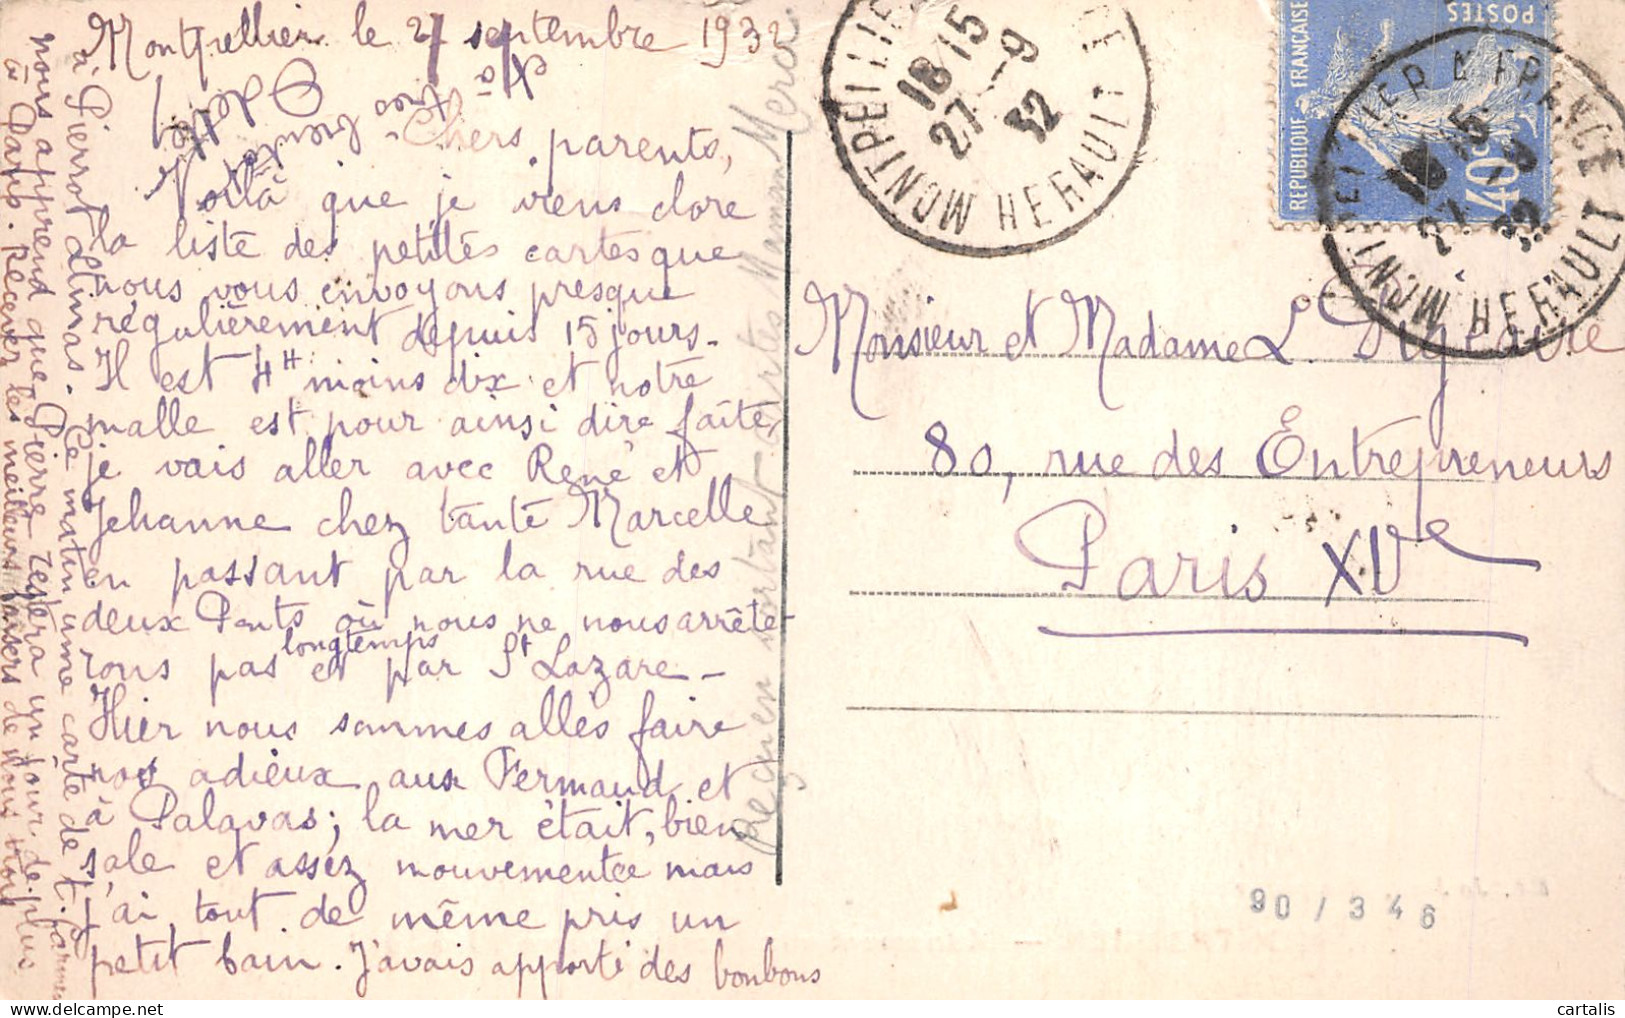 Montpellier le 27 septembre 1932
Chers parents,
Voilà que je viens clore
la liste des petites cartes que
nous vous envoyons presque
régulièrement depuis 15 jours.
Il est 4H moins dix et notre
malle est pour ainsi dire faite
je vais aller avec René et
Jehanne chez tante Marcelle
en passant par la rue des
deux Ponts où nous ne nous arrête-
rons pas longtemps et par St Lazare -
Hier nous sommes allés faire
nos adieux aux Fermaud et
à Palavas; la mer était, bien
sale et assez mouvementée mais
j'ai tout de même pris un
petit bain. J'avais apporté des bonbons
à Pierrot Delmas. Ce matin une carte de t.
nous apprend que Pierre restera un jour de plus
à Paris. Recevez les meilleurs baisers de nous trois
Odette
Reçu en sortant cartes Maman Merci
MONTPELLIER HERAULT
18 15
27 - 9
32
REPUBLIQUE FRANÇAISE
POSTES
40c
MONTPELLIER A FRANCE
HERAULT
Monsieur et Madame L.
80, rue des Entrepreneurs
Paris XVe
90 / 346
cartalis